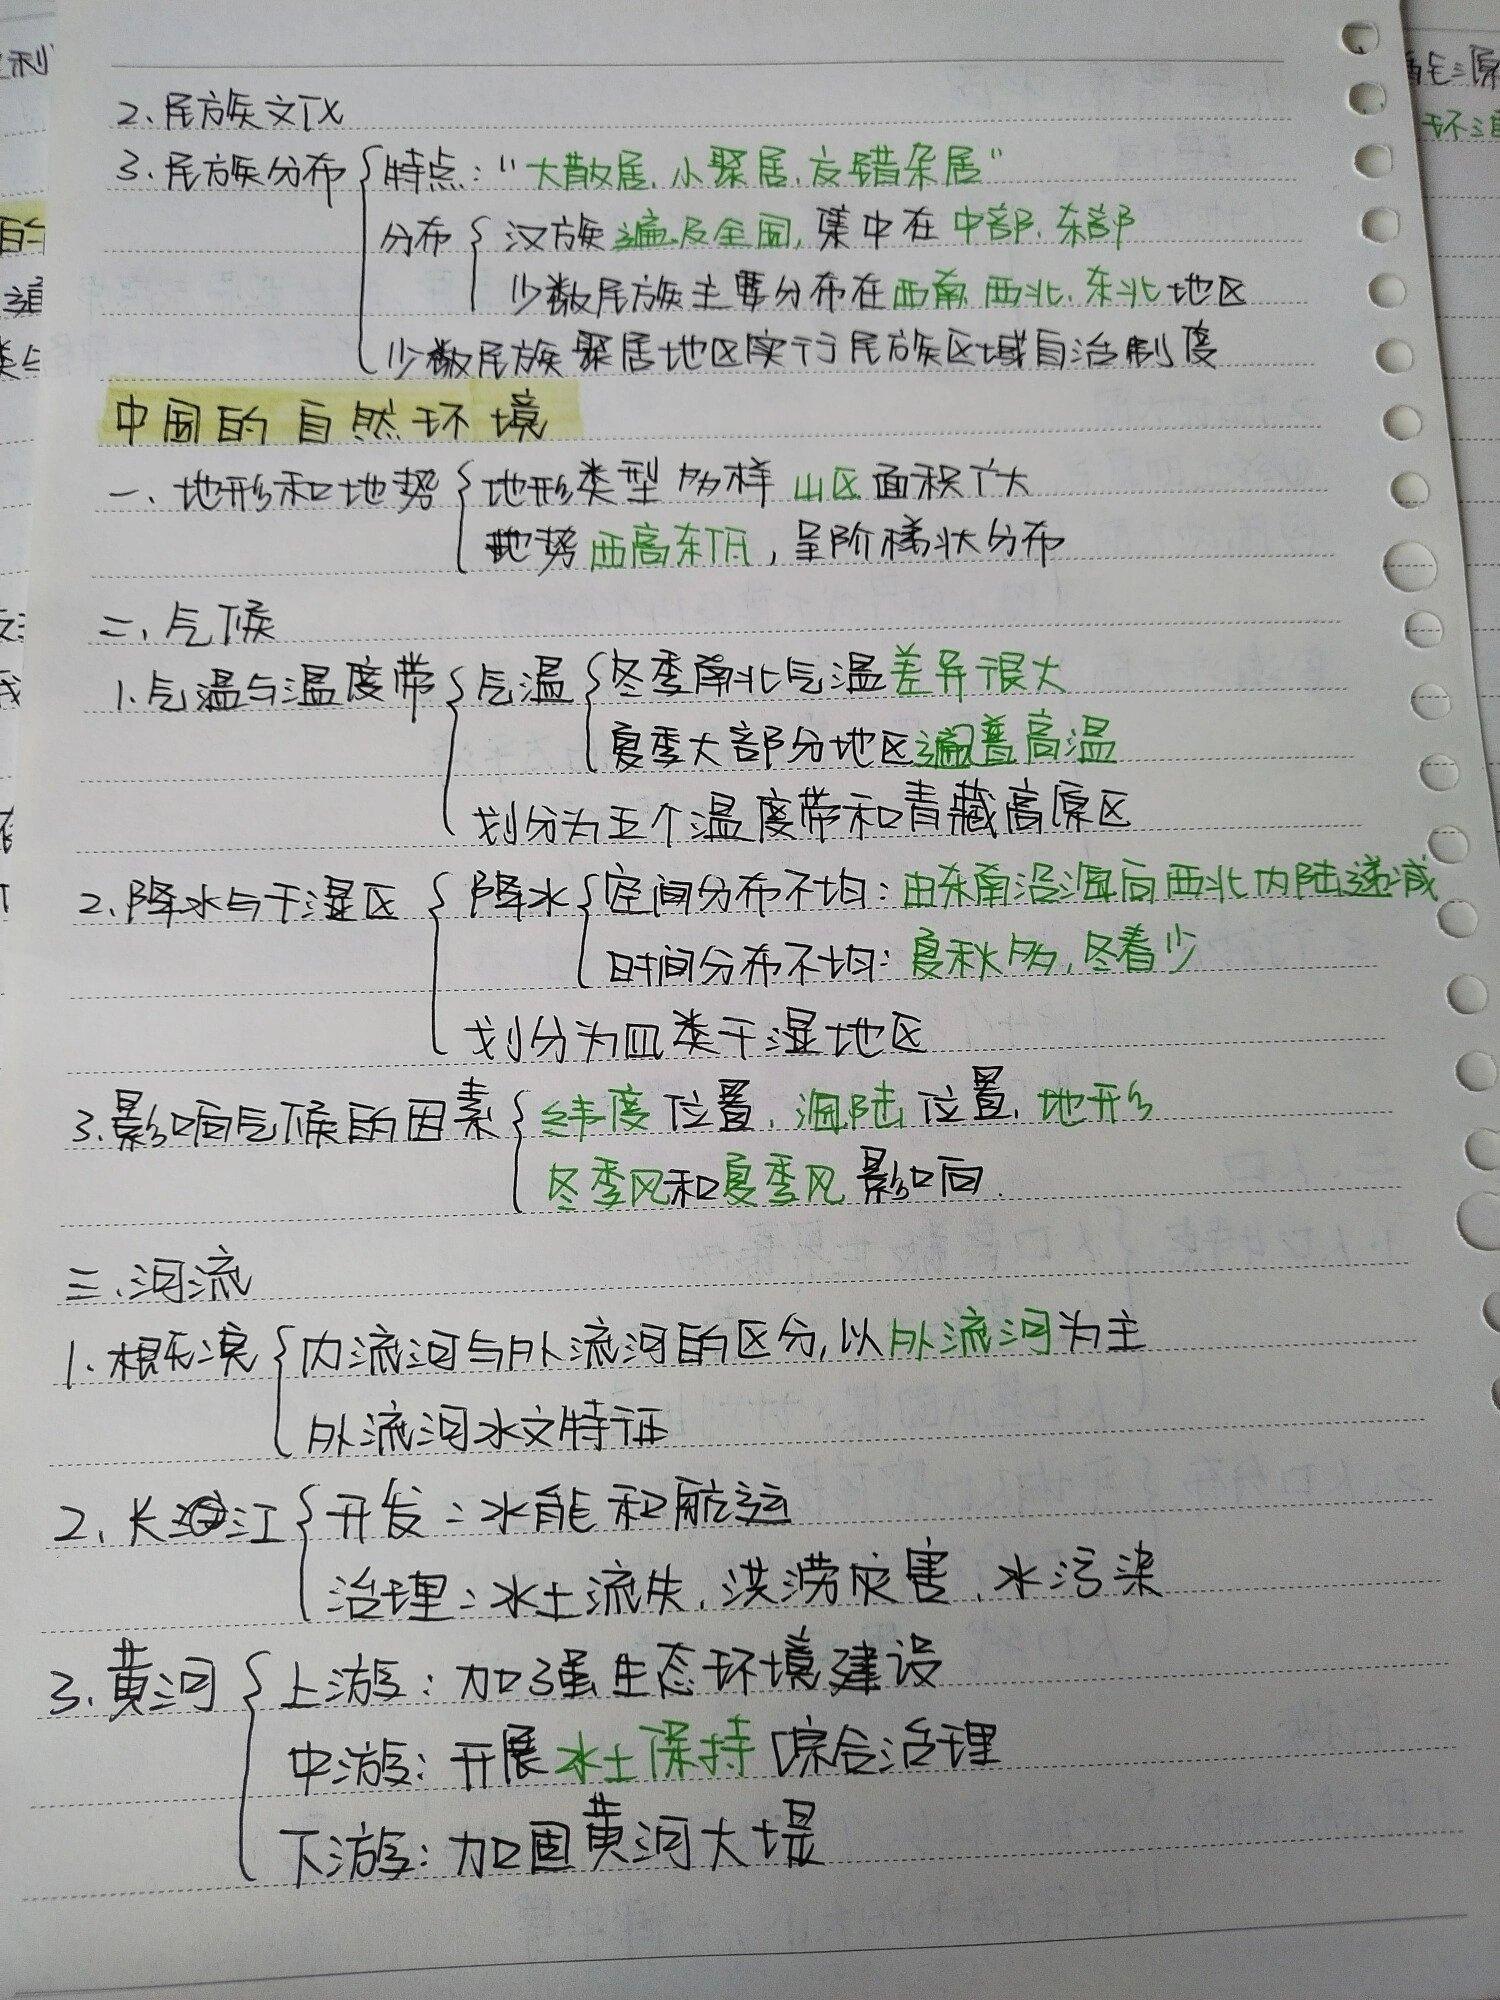 2、民族文化
3、民族分布 特点：“大散居、小聚居、交错杂居”
分布 汉族遍及全国，集中在中部、东部
少数民族主要分布在西南、西北、东北地区
少数民族聚居地区实行民族区域自治制度
中国的自然环境
一、地形和地势 地形类型多样 山区面积广大
地势西高东低，呈阶梯状分布
二、气候
1.气温与温度带 气温 冬季南北气温差异很大
夏季大部分地区遍普高温
划分为五个温度带和青藏高原区
2.降水与干湿区 降水 空间分布不均：由东南沿海向西北内陆递减
时间分布不均：夏秋多，冬春少
划分为四类干湿地区
3.影响气候的因素 纬度位置、海陆位置、地形
冬季风和夏季风影响.
三、河流
1、概况 内流河与外流河的区分，以外流河为主
外流河水文特征
2、长江 开发：水能和航运
治理：水土流失、洪涝灾害、水污染
3.黄河 上游：加强生态环境建设
中游：开展水土保持综合治理
下游：加固黄河大堤